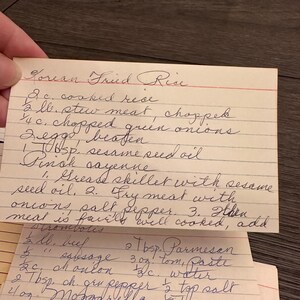 Korean Fried Rice
2 c. cooked rice
1/2 lb. stew meat, chopped
1/4 c. chopped green onions
2 eggs, beaten
1 Tbsp. sesame seed oil
Pinch cayenne
1. Grease skillet with sesame
seed oil. 2. Fry meat with
onions, salt, pepper. 3. When
meat is fairly well cooked, add
1/2 lb. beef 2 Tbsp. Parmesan
1/2 " sausage 3 oz tom. paste
1/2 c. ch onion 1/2 c. water
1 Tbsp. ch. grn pepper 1/2 tsp salt
4 oz Mozzarella